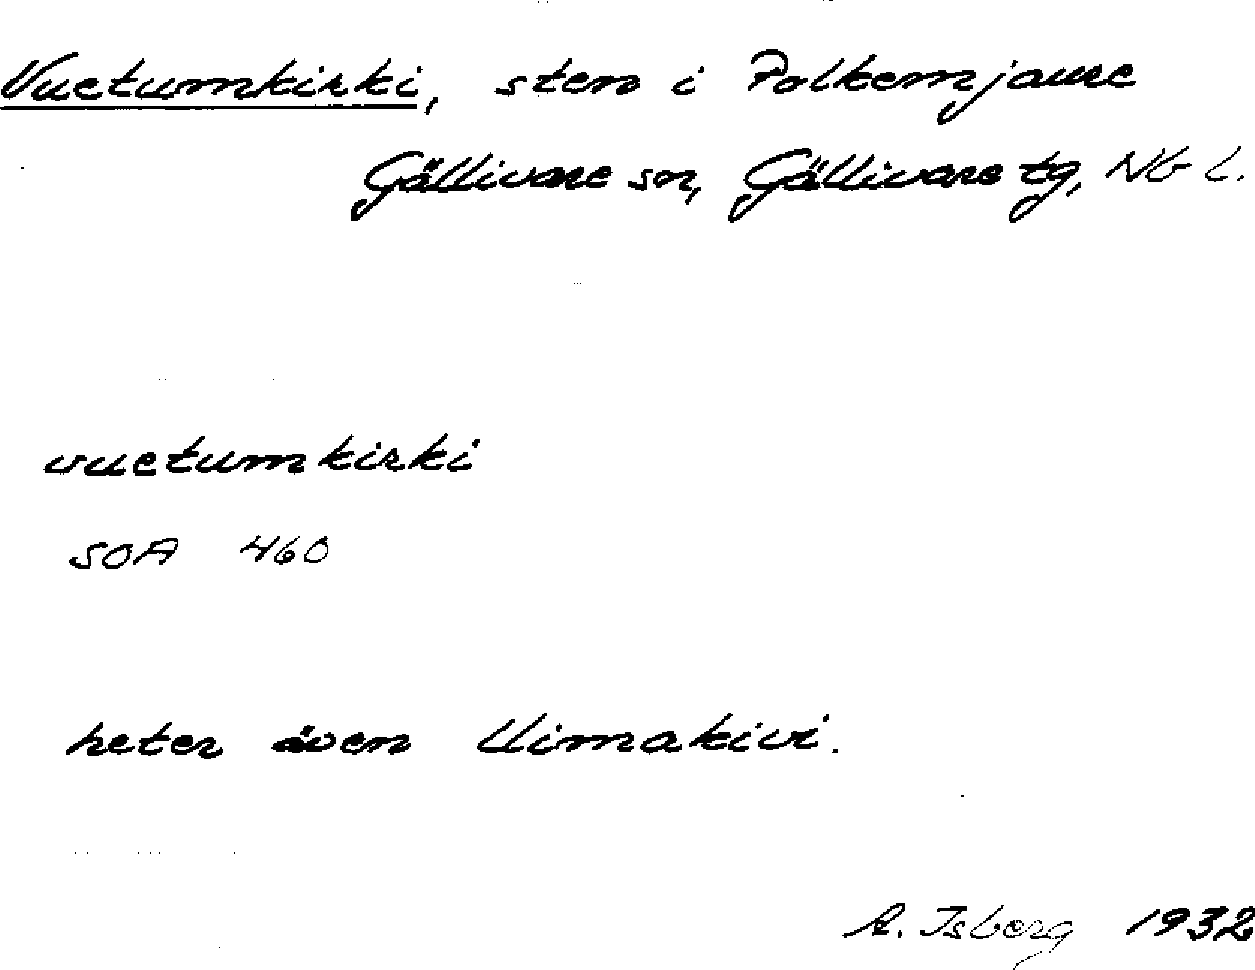 Vuetumkirki, sten i Polkemjaure
Gällivare sn, Gällivare tg, Nb L.
vuetumkirki
SOA 460
heter även Uimakivi.
A. Isberg 1932